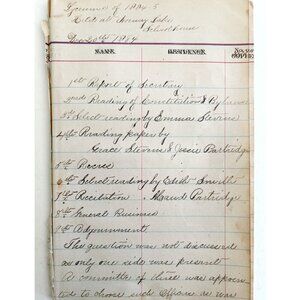 of 1894-5
Held at Norway Lake
School house
Dec 20th 1894
NAME. RESIDENCE. NO. OF
1st Report of Secretary
2nd Reading of Constitution & Bylaws
3rd Select reading by Emma Stevens
4th Reading paper by
Grace Stevens & Josie Partridge
5th Recess
6th Select reading by Edith
7th Recitation - Maud Partridge
8th General Business
9th Adjournment
This question was not discussed
as only one side was present -
A committee of three was appoin-
ted to choose such officers as was